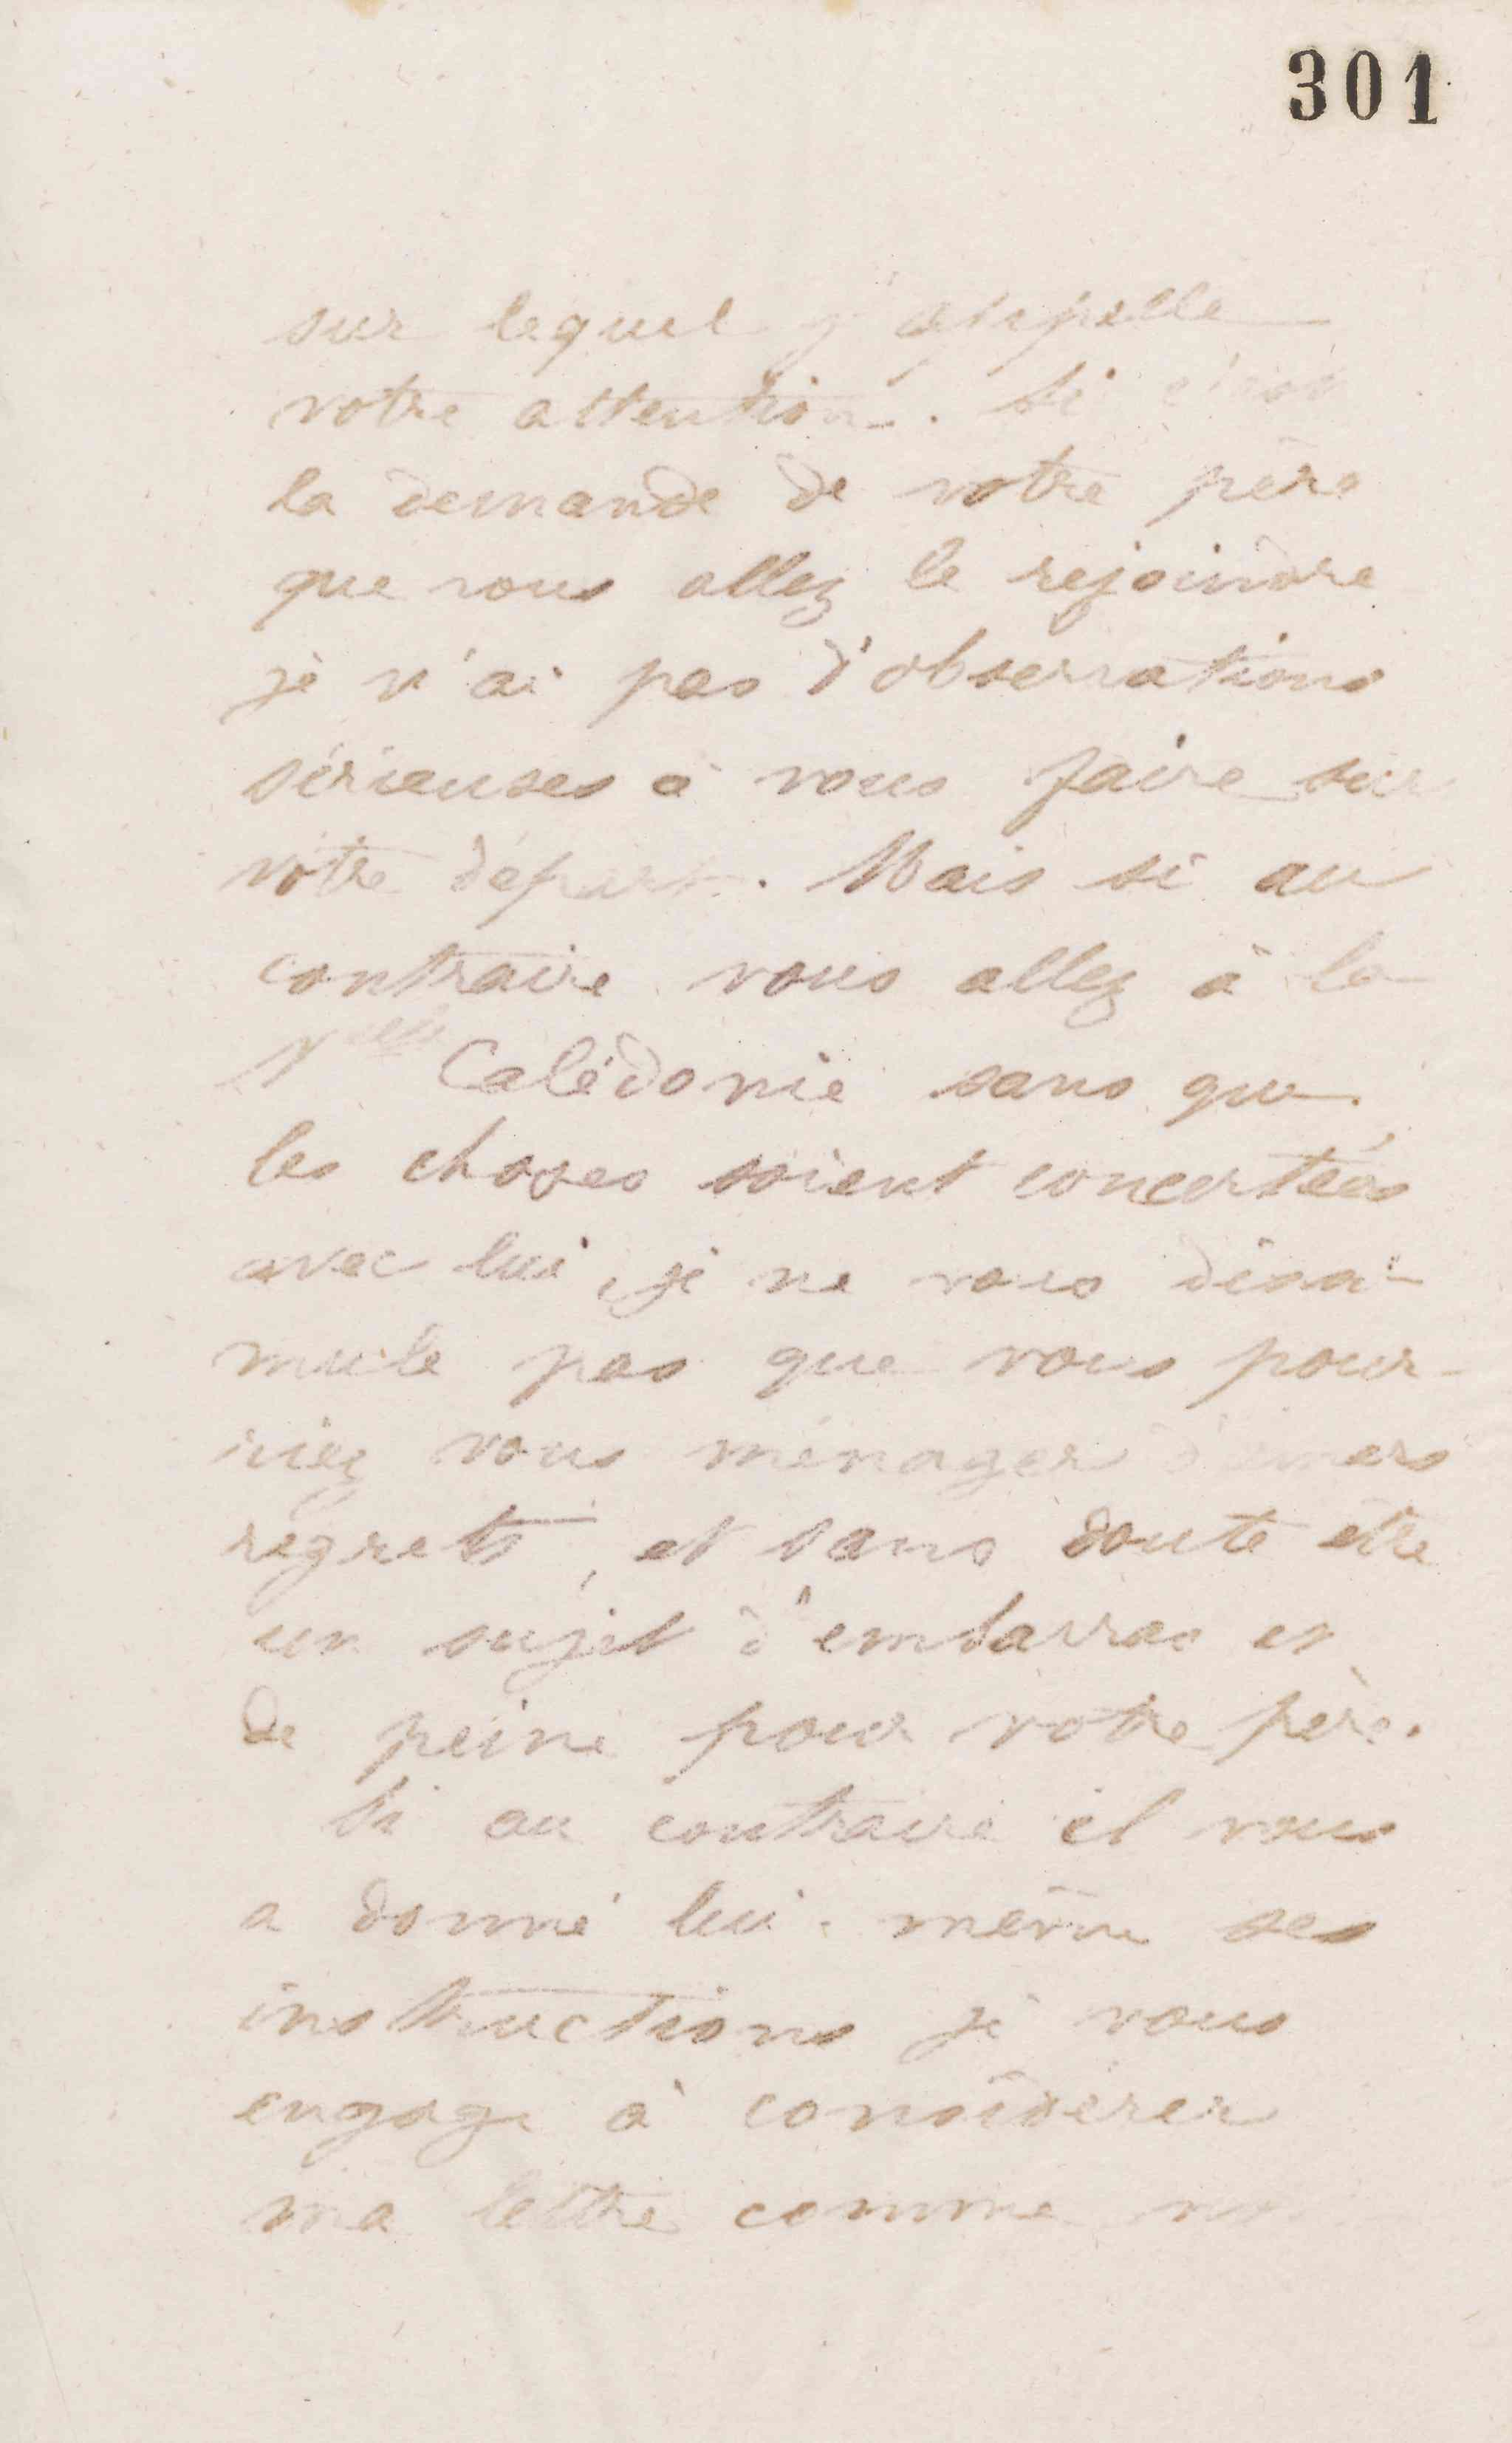 301
sur lequel j'appelle
votre attention. Si c'est
la demande de votre père
que vous allez le rejoindre
je n'ai pas d'observations
sérieuses à vous faire sur
votre départ. Mais si au
contraire vous allez à la
Nelle Calédonie sans que
les choses soient concertées
avec lui, je ne vous dissi-
mule pas que vous pour-
riez vous ménager d'amers
regrets, et sans doute être
un sujet d'embarras et
de peine pour votre père.
Si au contraire il vous
a donné lui-même ses
instructions je vous
engage à considérer
ma lettre comme